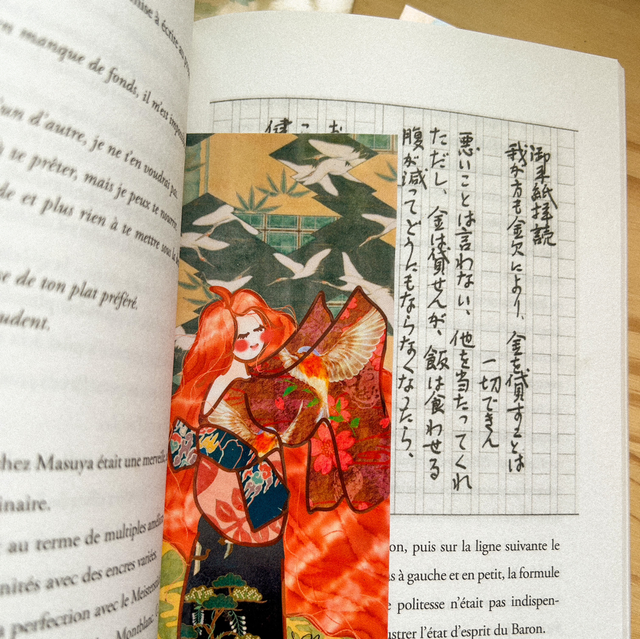 à écrire au
en manque de fonds, il n'est
un d'autre, je ne t'en voudrai pas.
à te prêter, mais je peux te nourrir
de et plus rien à te mettre sous la
se de ton plat préféré.
udent.
chez Masuya était une merveille
inaire.
au terme de multiples
nités avec des encres variées.
a perfection avec le
Montblanc
御手紙拝読
我が方も金欠により、金を貸すことは
一切できん
悪いことは言わない、他を当たってくれ
ただし、金は貸せんが、飯は食わせる
腹が減ってどうにもならなくなったら、
on, puis sur la ligne suivante le
s à gauche et en petit, la formule
e politesse n'était pas indispen-
ustrer l'état d'esprit du Baron.